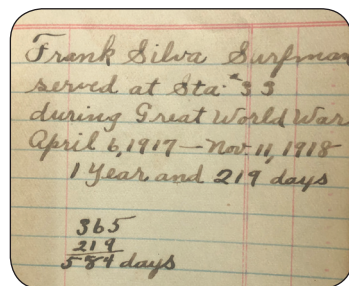 Frank Silva Surfman
served at Sta. #33
during Great World War
April 6, 1917 — Nov. 11, 1918
1 Year and 219 days
365
219
584 days